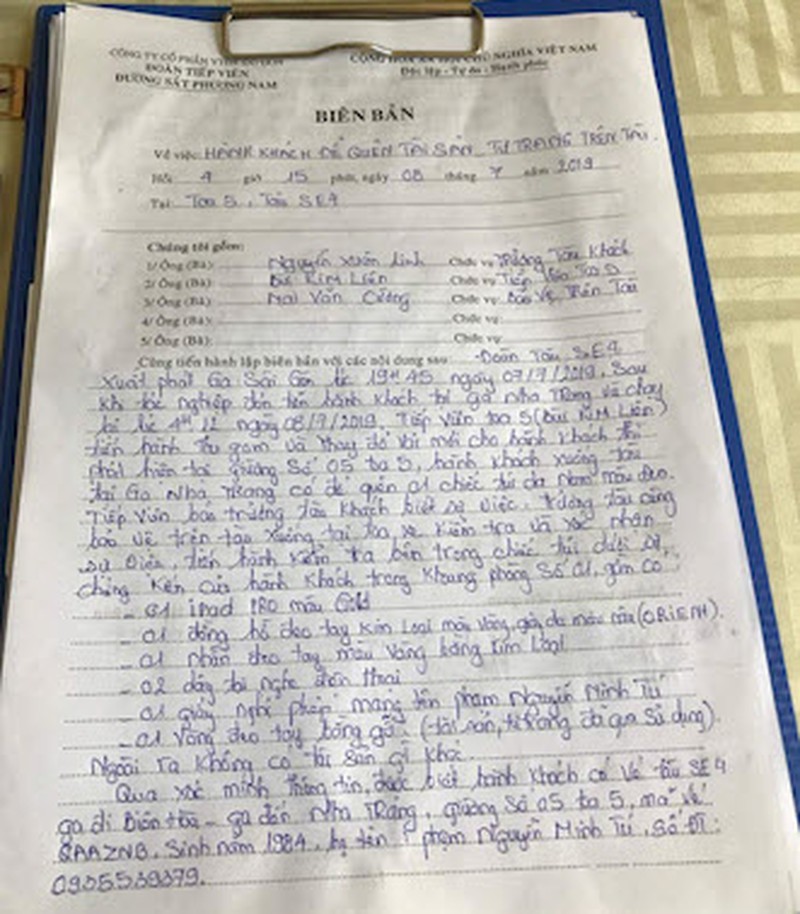 CÔNG TY CỔ PHẦN
ĐOÀN TIẾP VIÊN
ĐƯỜNG SẮT PHƯƠNG NAM
CỘNG HÒA XÃ HỘI CHỦ NGHĨA VIỆT NAM
Độc lập - Tự do - Hạnh phúc
BIÊN BẢN
Về việc: HÀNH KHÁCH ĐỂ QUÊN TÀI SẢN, TƯ TRANG TRÊN TÀU.
Hồi 4 giờ 15 phút, ngày 08 tháng 7 năm 2019
Tại: Toa 5, Tàu SE4
Chúng tôi gồm:
1/ Ông (Bà): Nguyễn Xuân Linh Chức vụ: Trưởng Tàu Khách
2/ Ông (Bà): Bùi Kim Liên Chức vụ: Tiếp Viên Toa 5
3/ Ông (Bà): Mai Văn Cường Chức vụ: Bảo Vệ Trên Tàu
4/ Ông (Bà): Chức vụ:
5/ Ông (Bà): Chức vụ:
Cùng tiến hành lập biên bản với các nội dung sau: Đoàn Tàu SE4
Xuất phát Ga Sài Gòn lúc 19h45 ngày 07/7/2019. Sau
khi tác nghiệp đón tiễn hành khách tại ga Nha Trang và chạy
lúc 4h12 ngày 08/7/2019. Tiếp Viên toa 5 (Bùi Kim Liên)
tiến hành thu gom và thay đồ vải mới cho hành khách thì
phát hiện tại giường Số 05 toa 5, hành khách xuống tàu
tại Ga Nha Trang có để quên 01 chiếc túi da Nam màu đen.
Tiếp Viên báo trưởng tàu khách biết sự việc. Trưởng tàu cùng
bảo vệ trên tàu xuống tại toa xe kiểm tra và xác nhận
sự việc, tiến hành kiểm tra bên trong chiếc túi dưới sự
chứng kiến của hành khách trong khoang phòng số 01, gồm có:
- 01 ipad PRO màu Gold
- 01 đồng hồ đeo tay kim loại màu vàng, dây da màu nâu (ORIENT).
- 01 nhẫn đeo tay màu vàng bằng kim loại
- 02 dây tai nghe điện thoại
- 01 giấy nghỉ phép mang tên Phạm Nguyễn Minh Tú
- 01 vòng đeo tay bằng gỗ. (tài sản, tư trang đã qua sử dụng).
Ngoài ra không có tài sản gì khác.
Qua xác minh thông tin, được biết hành khách có vé tàu SE4
ga đi Biên Hòa - ga đến Nha Trang, giường Số 05 toa 5, mã vé
Sinh năm 1984, họ tên: Phạm Nguyễn Minh Tú, Số ĐT:
0935539379.